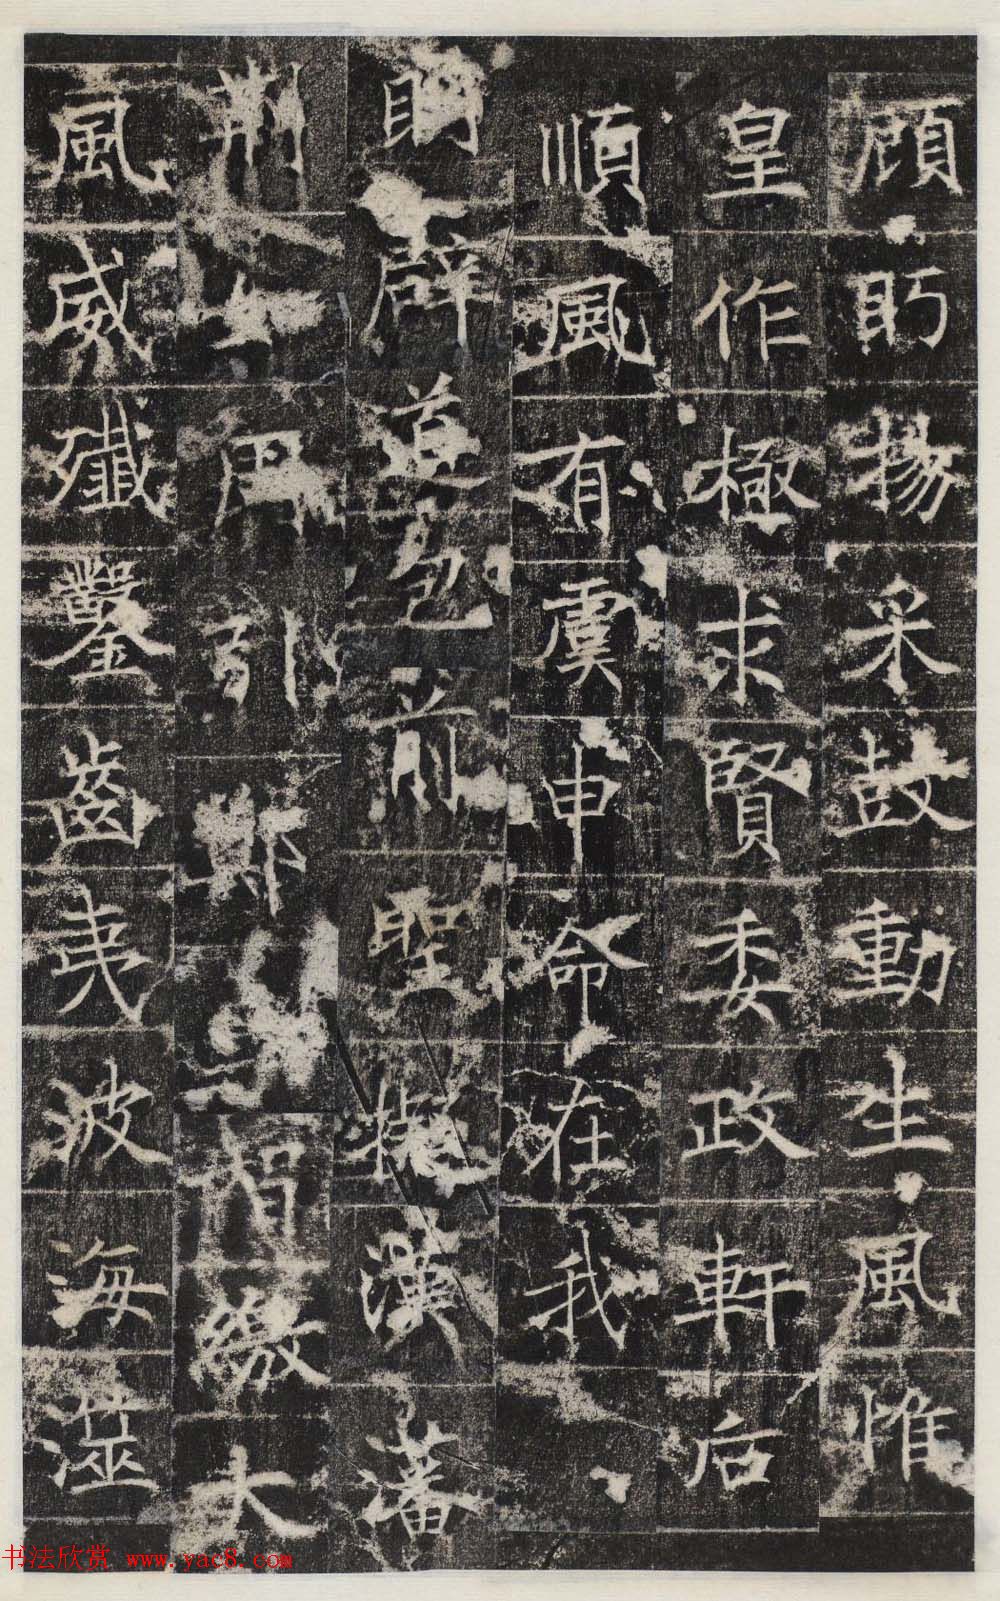 顧眄揚采鼓動生風惟
皇作極求賢委政軒后
順風有虞申命在我
辟道包前聖擬漢藩
荆引鄭繳大
風威殲鑿齒夷波海澨
书法欣赏 www.yac8.com